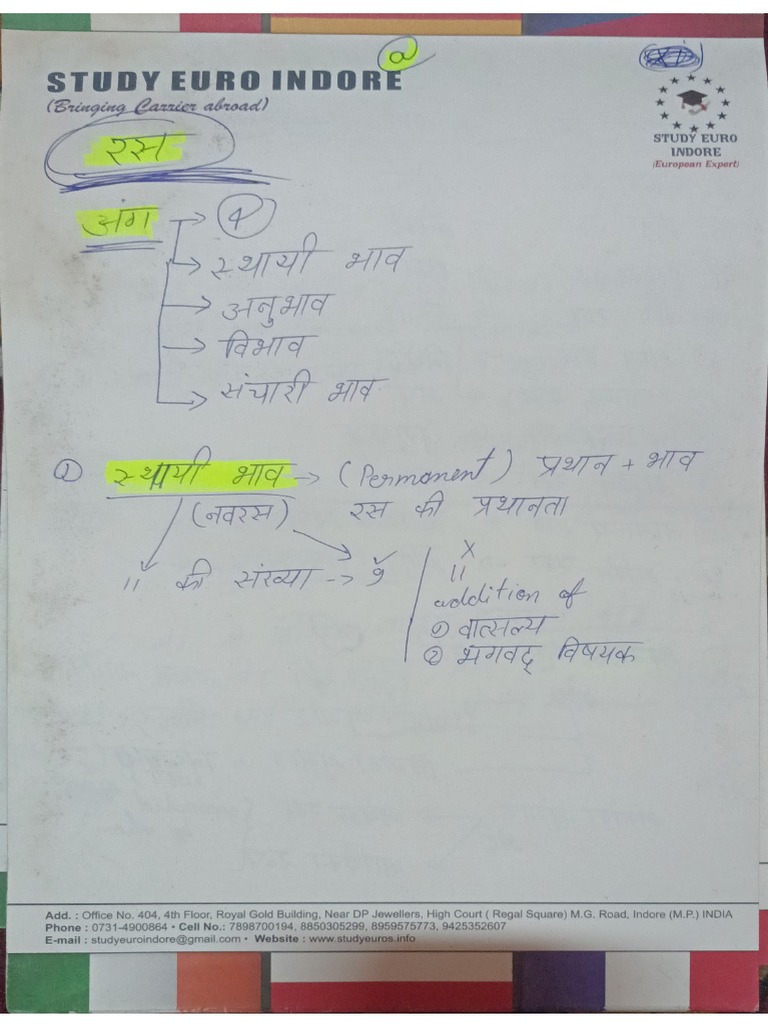 a
STUDY EURO INDORE
(Bringing Carrier abroad)
STUDY EURO
INDORE
(European Expert)
रस
अंग → 4
→ स्थायी भाव
→ अनुभाव
→ विभाव
→ संचारी भाव
① स्थायी भाव → (Permanent) प्रधान + भाव
(नवरस) रस की प्रधानता
" की संख्या -> 9
X
11
addition of
① वात्सल्य
② भगवद् विषयक
Add. : Office No. 404, 4th Floor, Royal Gold Building, Near DP Jewellers, High Court ( Regal Square) M.G. Road, Indore (M.P.) INDIA
Phone : 0731-4900864 • Cell No.: 7898700194, 8850305299, 8959575773, 9425352607
E-mail : studyeuroindore@gmail.com • Website : www.studyeuros.info